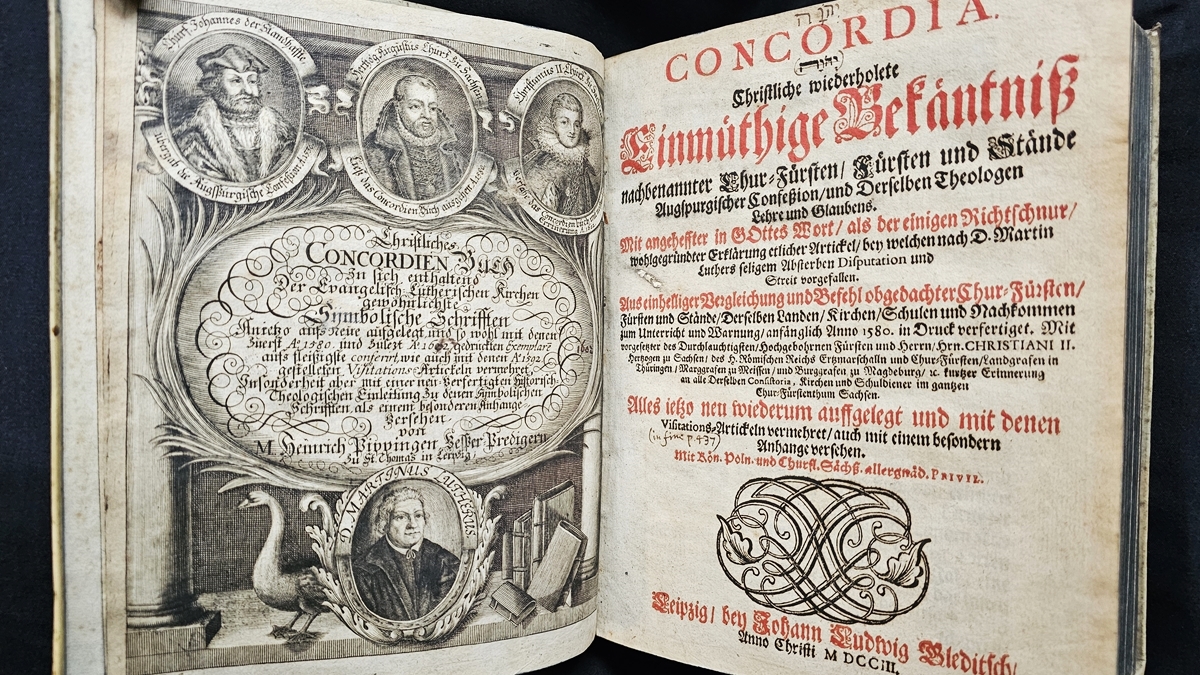 Churf. Johannes der Standhaffte.
ubergab die Augspurgische Confession A. 1530
Hertzog Augustus Churf. Zu Sachsen
liese das Concordien Buch ausgehen A. 1580
Christianus II. Churf. Zu
Concordien buch
Erinnerung
Christliches
CONCORDIEN Buch
in sich enthaltend
Der Evangelisch Lutherischen Kirchen
gewöhnlichste
Symbolische Schrifften
Anietzo aufs Neue aufgelegt und so wohl mit denen
Zuerst Aº 1580. und Zulezt Aº gedruckten Exemplare
aufs fleißigste conferirt, wie auch mit denen Aº 1592.
gestelleten Visitations Artickeln vermehret,
Insonderheit aber mit einer neu verfertigten Historisch-
Theologischen Einleitung Zu denen Symbolischen
Schrifften als einem besonderen Anhange
versehen
von
M. Heinrich Pippingen Vesper Predigern
zu St. Thomas in Leipzig
D. MARTINUS LUTHERUS.
יהוה
CONCORDIA.
יהוה
Christliche wiederholete
Einmüthige Bekäntniß
nachbenannter Chur-Fürsten/ Fürsten und Stände
Augspurgischer Confeßion/ und Derselben Theologen
Lehre und Glaubens.
Mit angeheffter in GOttes Wort/ als der einigen Richtschnur/
wohlgegründter Erklärung etlicher Artickel/ bey welchen nach D. Martin
Luthers seligem Absterben Disputation und
Streit vorgefallen.
Aus einhelliger Vergleichung und Befehl obgedachter Chur-Fürsten/
Fürsten und Stände/ Derselben Landen/ Kirchen/ Schulen und Nachkommen
zum Unterricht und Warnung/ anfänglich Anno 1580. in Druck verfertiget. Mit
vorgesetzter des Durchlauchtigsten/ Hochgebohrnen Fürsten und Herrn/ Hrn. CHRISTIANI II.
Hertzogen zu Sachsen/ des H. Römischen Reichs Ertzmarschalln und Chur-Fürsten/ Landgrafen in
Thüringen/ Marggrafen zu Meissen/ und Burggrafen zu Magdeburg/ ꝛc. kurtzer Erinnerung
an alle Derselben Consistoria, Kirchen und Schuldiener im gantzen
Chur-Fürstenthum Sachsen.
Alles ietzo neu wiederum auffgelegt und mit denen
Visitations-Artickeln vermehret/ auch mit einem besondern
(in fine p. 437)
Anhange versehen.
Mit Kön. Poln. und Churfl. Sächß. allergnäd. PRIVIL.
Leipzig/ bey Johann Ludwig Gleditsch/
Anno Christi M DCCIII.